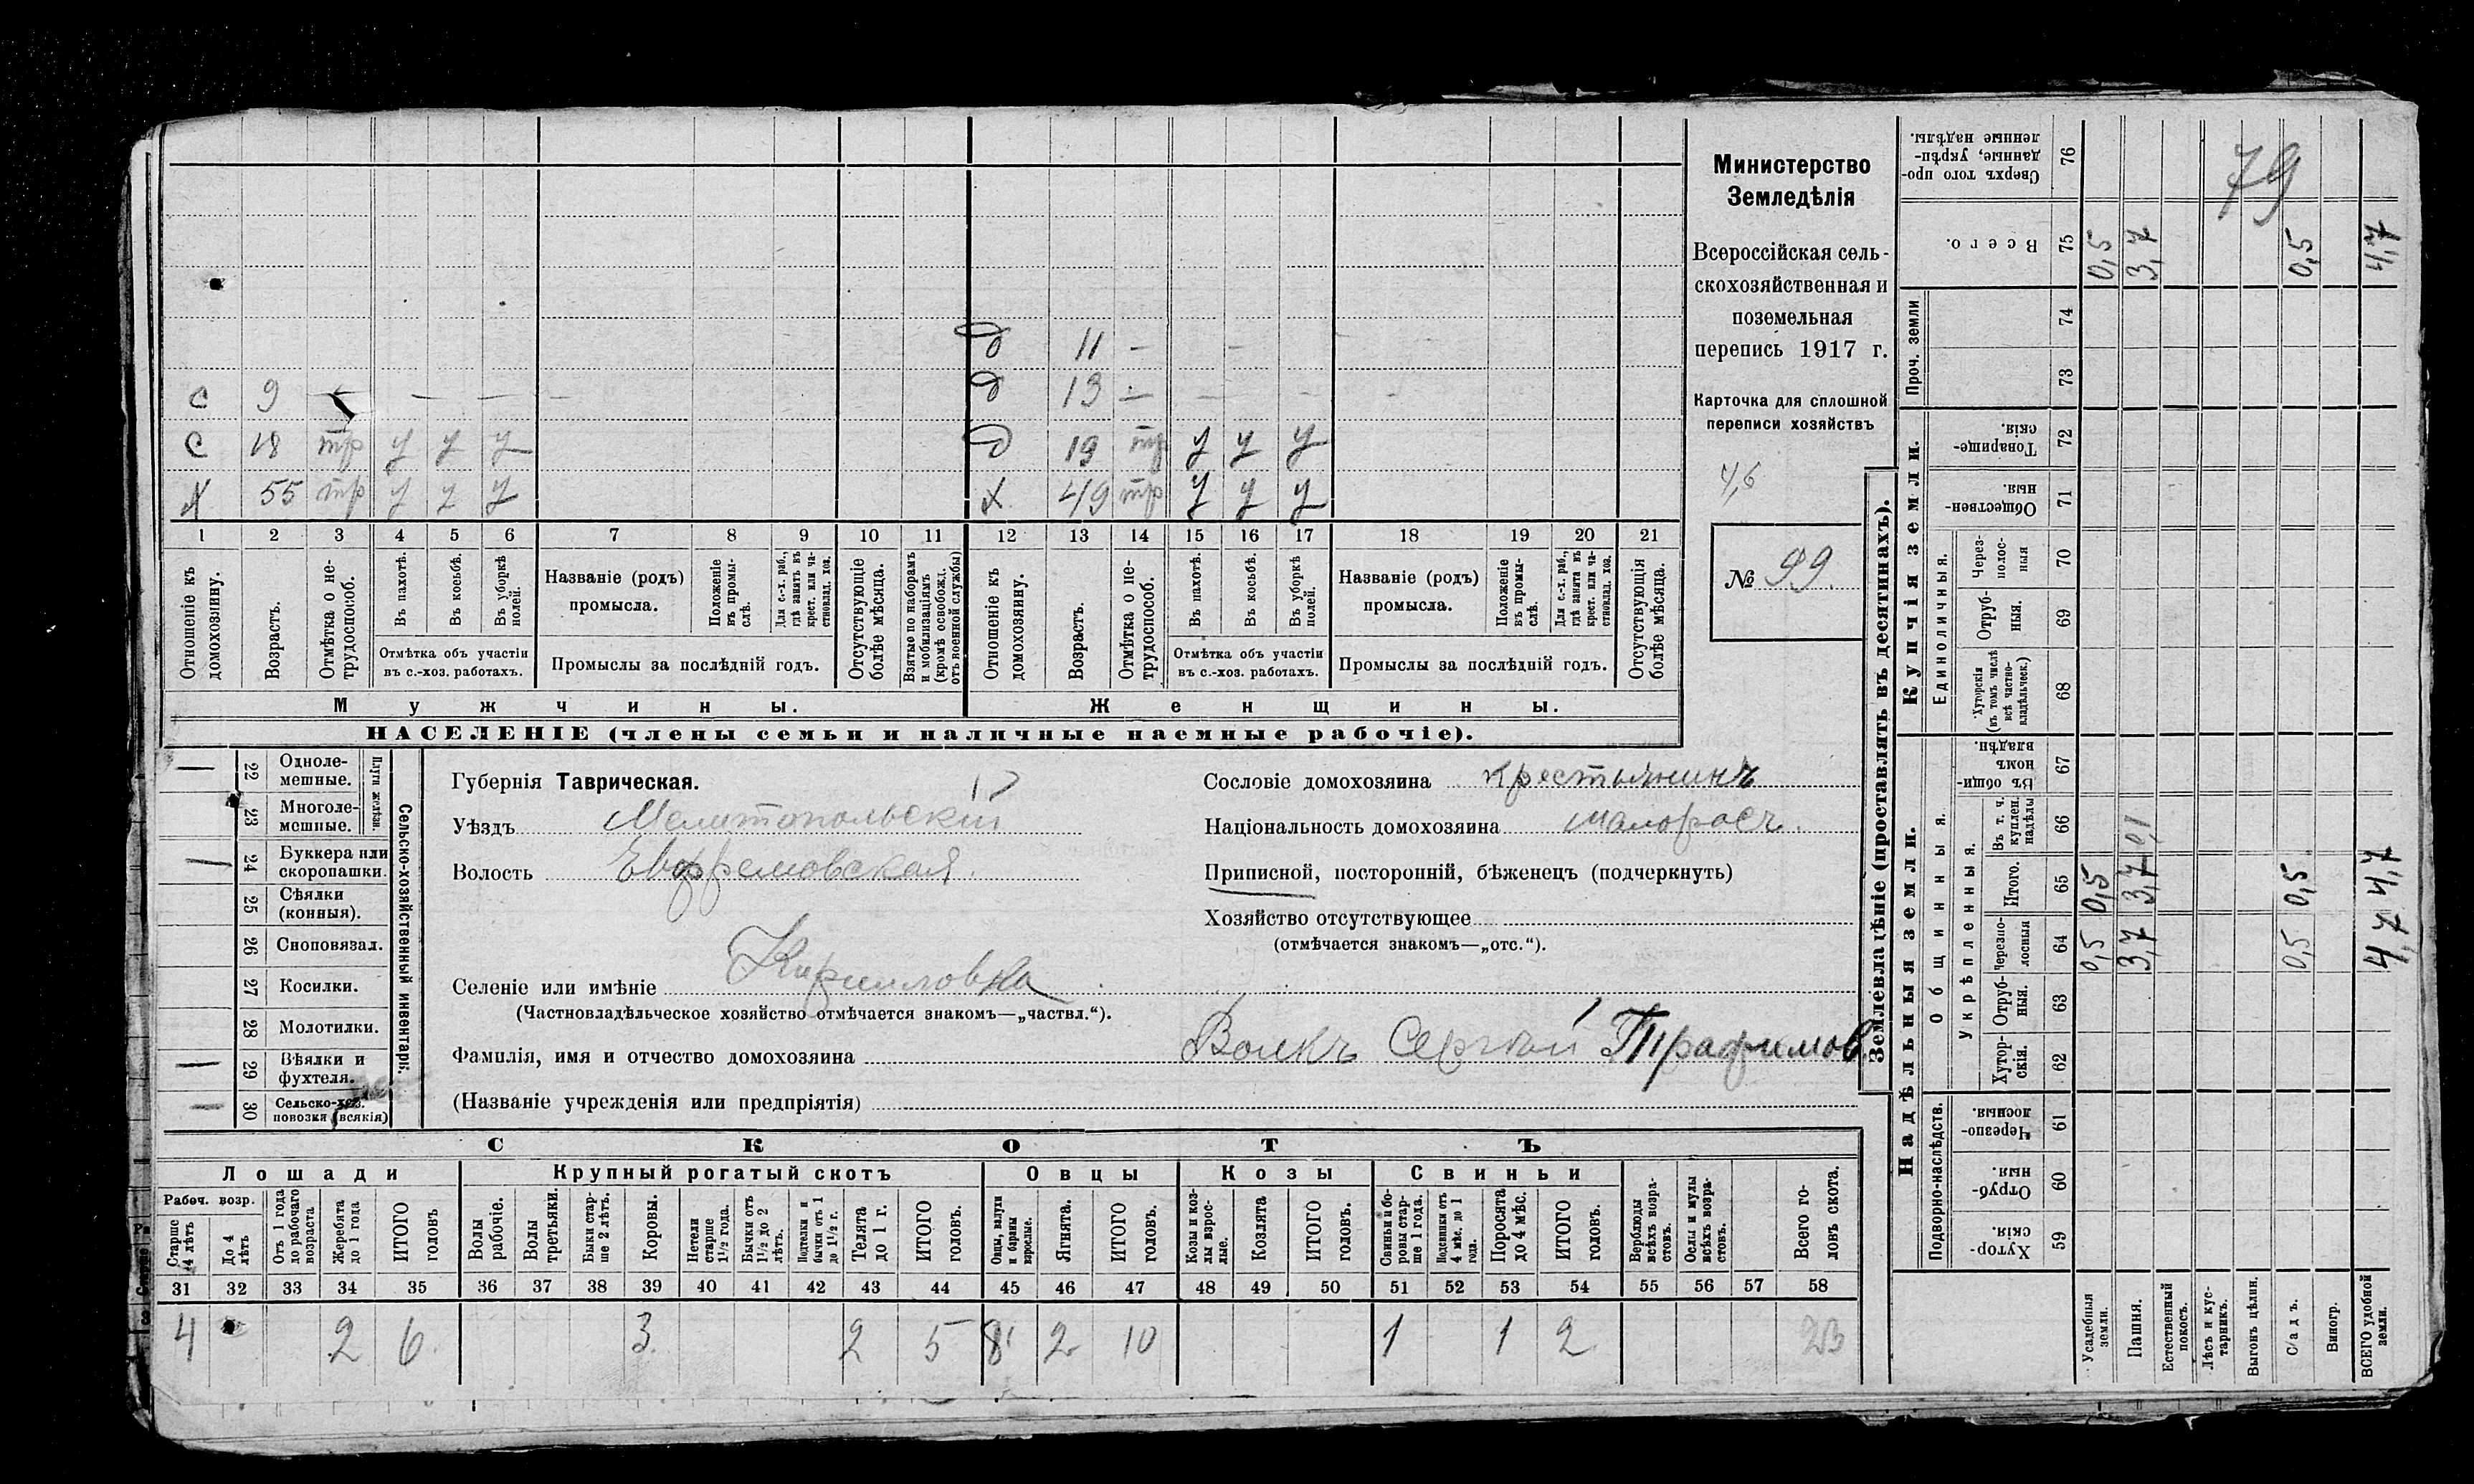 Министерство
Земледѣлія
Всероссійская сель-
скохозяйственная и
поземельная
перепись 1917 г.
Карточка для сплошной
переписи хозяйствъ
4,6
№ 99.
д 11 — —
с 9 — — — — —
д 13 — — — — —
с 18 тр у у у
д 19 тр у у у
х 55 тр у у у
х 49 тр у у у
1 2 3 4 5 6 7 8 9 10 11 12 13 14 15 16 17 18 19 20 21
Отношеніе къ домохозяину.
Возрастъ.
Отмѣтка о не-трудоспособ.
Въ пахотѣ.
Въ косьбѣ.
Въ уборкѣ полей.
Отмѣтка объ участіи
въ с.-хоз. работахъ.
Названіе (родъ)
промысла.
Положеніе въ промы-слѣ.
Для с.-х. раб., гдѣ занятъ въ крест. или ча-стновлад. хоз.
Промыслы за послѣдній годъ.
Отсутствующіе болѣе мѣсяца.
Взятые по наборамъ и мобилизаціямъ (кромѣ освобожд. отъ военной службы)
Отношеніе къ домохозяину.
Возрастъ.
Отмѣтка о не-трудоспособ.
Въ пахотѣ.
Въ косьбѣ.
Въ уборкѣ полей.
Отмѣтка объ участіи
въ с.-хоз. работахъ.
Названіе (родъ)
промысла.
Положеніе въ промы-слѣ.
Для с.-х. раб., гдѣ занята въ крест. или ча-стновлад. хоз.
Промыслы за послѣдній годъ.
Отсутствующія болѣе мѣсяца.
Мужчины.
Женщины.
НАСЕЛЕНІЕ (члены семьи и наличные наемные рабочіе).
— 22 Однолемешные.
23 Многолемешные.
Плуги желѣзн.
— 24 Буккера или скоропашки.
25 Сѣялки (конныя).
26 Сноповязал.
27 Косилки.
28 Молотилки.
— 29 Вѣялки и фухтеля.
— 30 Сельско-хоз. повозки (всякія)
Сельско-хозяйственный инвентарь.
Губернія Таврическая.
Уѣздъ Мелитопольскій
Волость Ефремовская.
Селеніе или имѣніе Кирилловка
(Частновладѣльческое хозяйство отмѣчается знакомъ—„частвл.“).
Фамилія, имя и отчество домохозяина Волкъ Сергѣй Трафимов
(Названіе учрежденія или предпріятія)
Сословіе домохозяина крестьянинъ
Національность домохозяина малоросъ.
Приписной, посторонній, бѣженецъ (подчеркнуть)
Хозяйство отсутствующее
(отмѣчается знакомъ—„отс.“).
СКОТЪ
Лошади
Крупный рогатый скотъ
Овцы
Козы
Свиньи
Рабоч. возр.
Старше 4 лѣтъ
До 4 лѣтъ
Отъ 1 года до рабочаго возраста
Жеребята до 1 года
ИТОГО головъ
Волы рабочіе.
Волы третьяки.
Быки стар-ше 2 лѣтъ.
Коровы.
Нетели старше 1½ года.
Бычки отъ 1½ до 2 лѣтъ.
Подтелки и бычки отъ 1 до 1½ г.
Телята до 1 г.
ИТОГО головъ.
Овцы, валухи и бараны взрослые.
Ягнята.
ИТОГО головъ.
Козы и коз-лы взрос-лые.
Козлята
ИТОГО головъ.
Свиньи и бо-ровы стар-ше 1 года.
Подсвинки отъ 4 мѣс. до 1 года.
Поросята до 4 мѣс.
ИТОГО головъ.
Верблюды всѣхъ возра-стовъ.
Ослы и мулы всѣхъ возра-стовъ.
Всего го-ловъ скота.
31 32 33 34 35 36 37 38 39 40 41 42 43 44 45 46 47 48 49 50 51 52 53 54 55 56 57 58
4 2 6. 3. 2 5 8 2 10 1 1 2 23
Землевладѣніе (проставлять въ десятинахъ).
Надѣльныя земли.
Купчія земли.
Проч. земли
Подворно-наслѣдств.
Общинныя.
Укрѣпленныя.
Единоличныя.
Хутор-скія. 59
Отруб-ныя. 60
Черезпо-лосныя. 61
Хутор-скія. 62
Отруб-ныя. 63
Черезпо-лосныя 64
Итого. 65
Въ т. ч. куплен. надѣлы 66
Въ общин-номъ владѣн. 67
Хуторскія (въ томъ числѣ всѣ частно-владѣльческ.) 68
Отруб-ныя. 69
Через-полос-ныя 70
Обществен-ныя. 71
Товарище-скія. 72
73
74
Всего. 75
Сверхъ того про-данные, укрѣп-ленные надѣлы. 76
Усадебныя земли. 0,5 0,5 0,5
Пашня. 3,7 3,7 0,1 3,7
Естественный покосъ.
Лѣсъ и кус-тарникъ.
Выгонъ цѣлин.
Садъ. 0,5 0,5 0,5
Виногр.
ВСЕГО удобной земли. 4,7 4,7 4,7
79